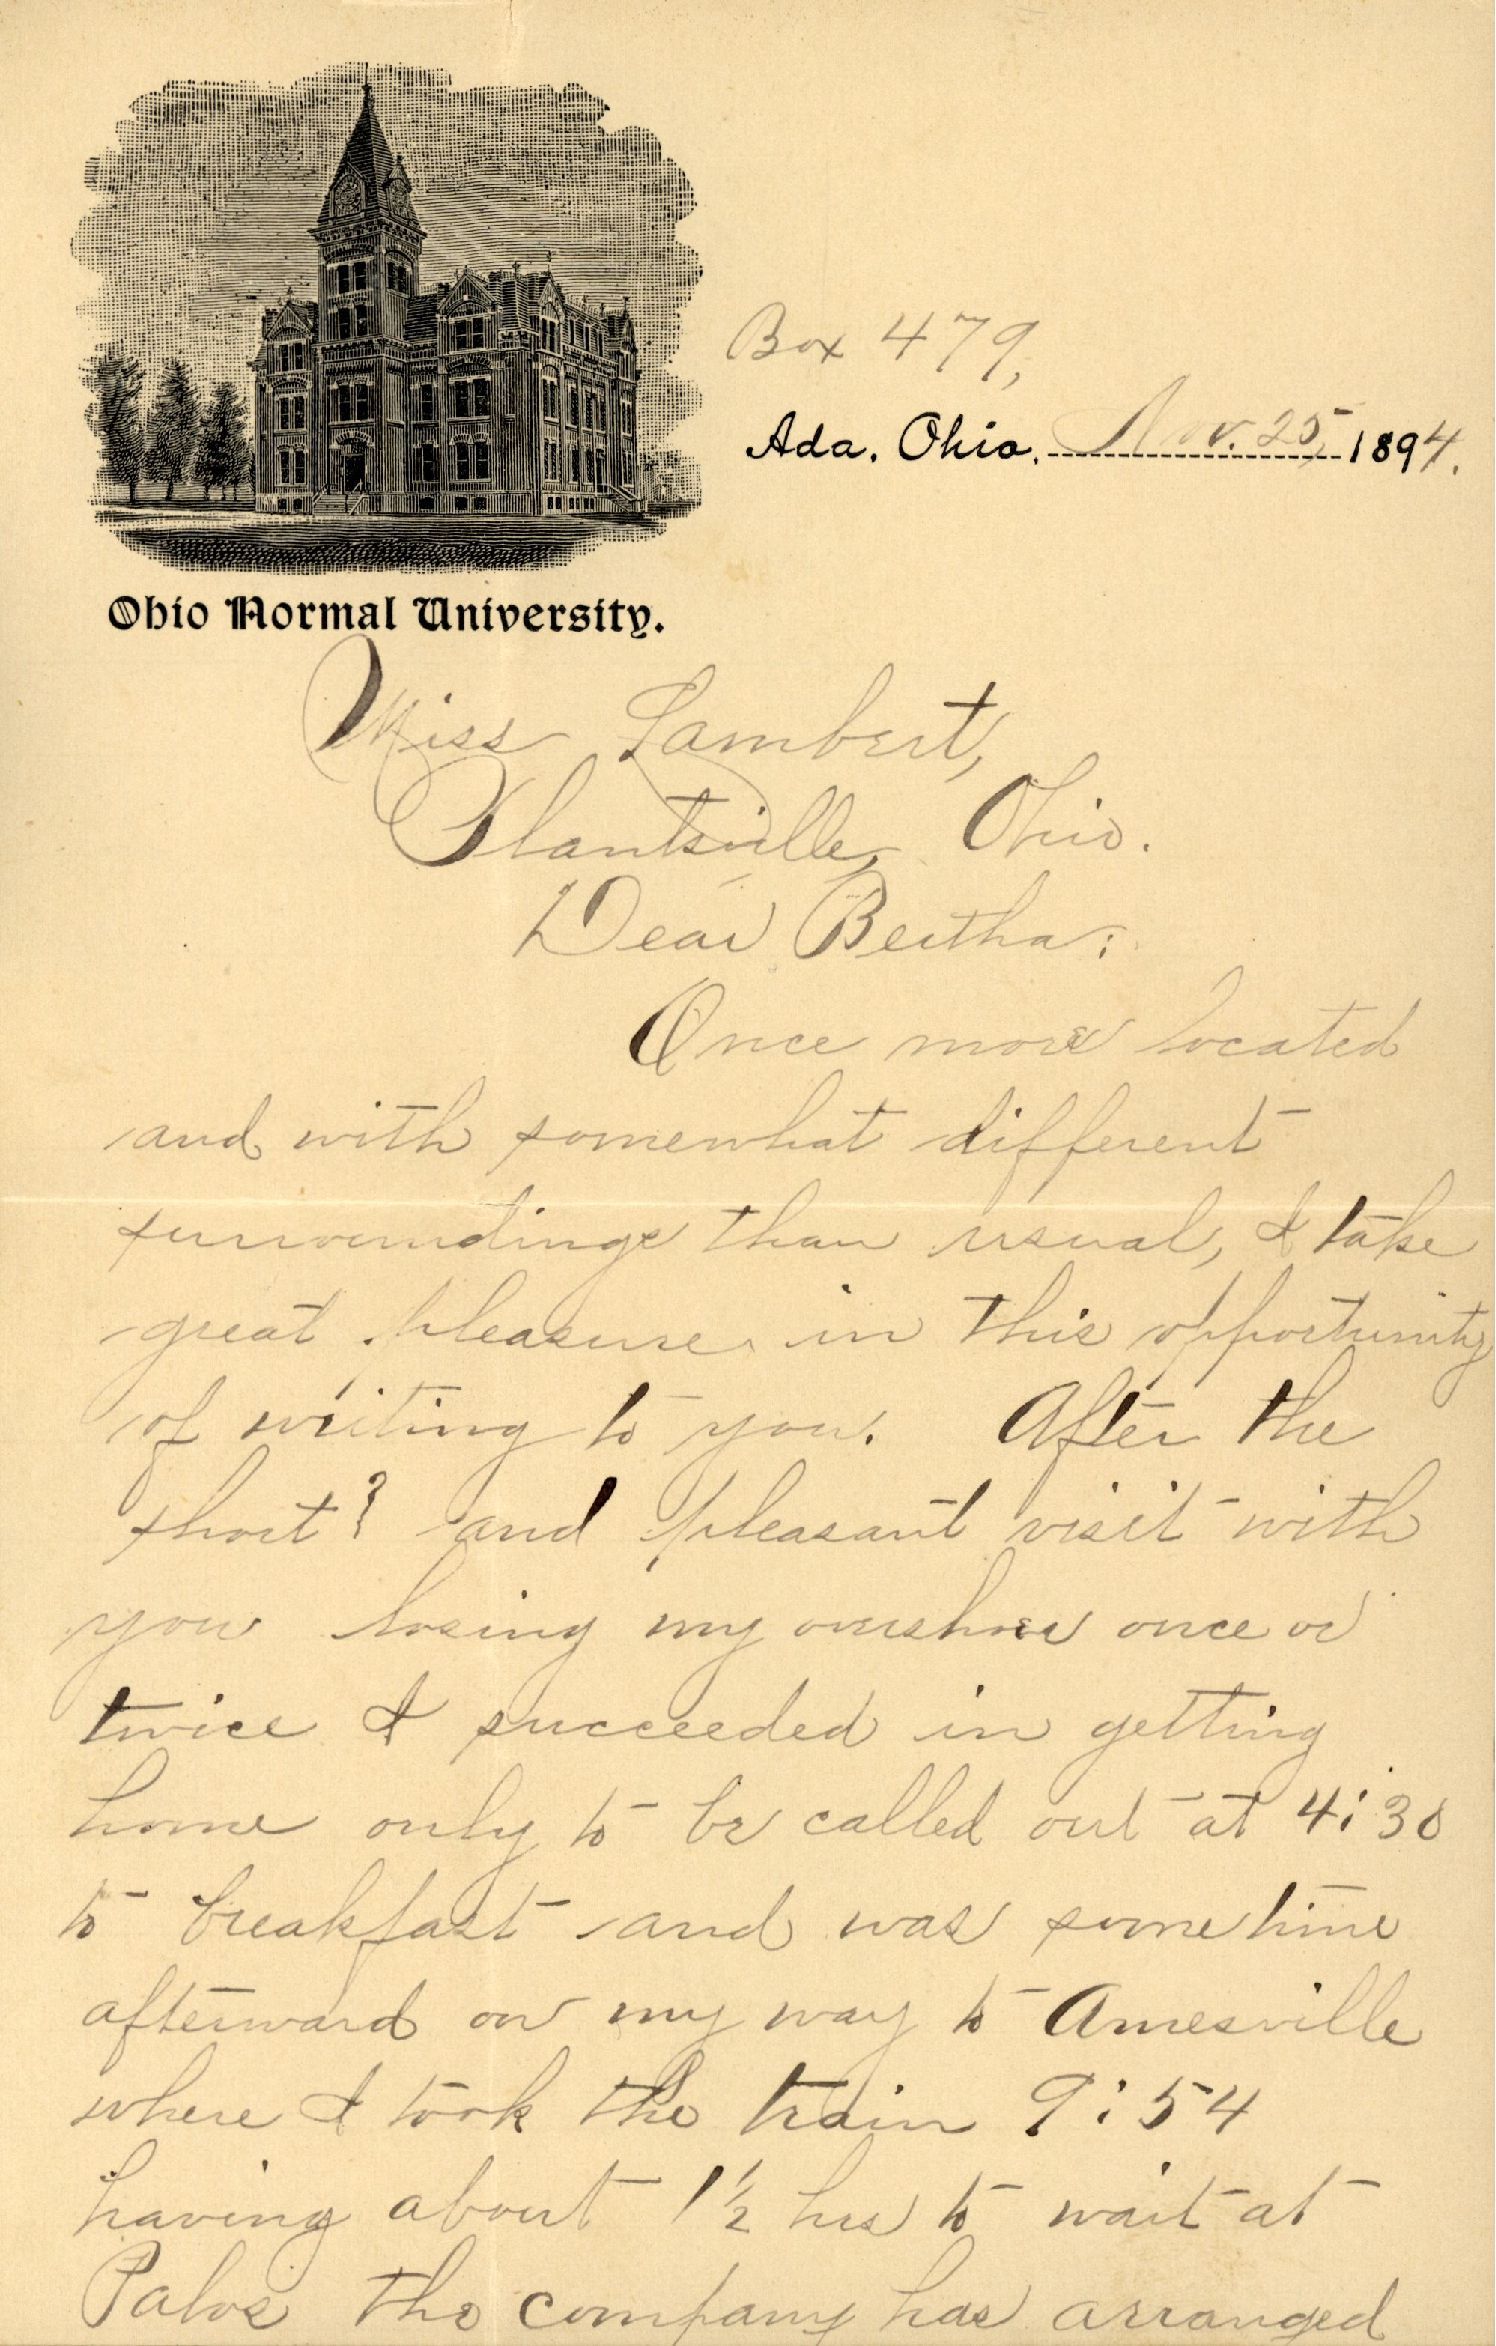 Box 479,
Ada, Ohio, Nov. 25, 1894.
Ohio Normal University.
Miss Lambert,
Plantsville, Ohio.
Dear Bertha:
Once more located
and with somewhat different
surroundings than usual, I take
great pleasure in this opportunity
of writing to you. After the
short? and pleasant visit with
you losing my overshoe once or
twice I succeeded in getting
home only to be called out at 4:30
to breakfast and was sometime
afterward on my way to Amesville
where I took the train 9:54
having about 1 1/2 hrs to wait at
Palos the company has arranged